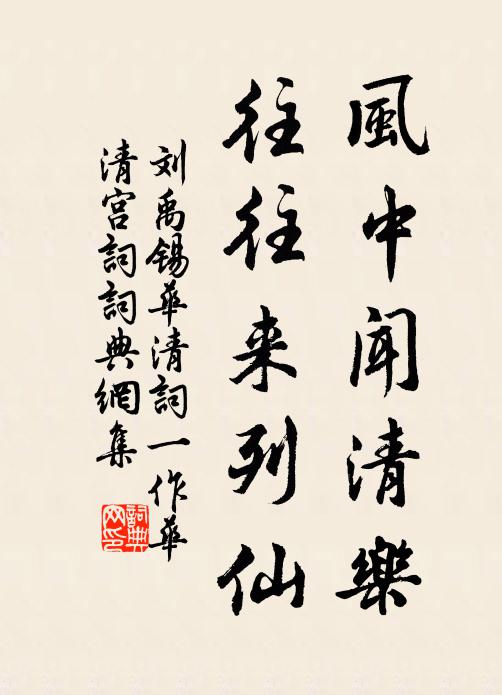 風中聞清樂
往往来列仙
刘禹锡華清詞一作華
清宫詞詞典網集
詞典网印